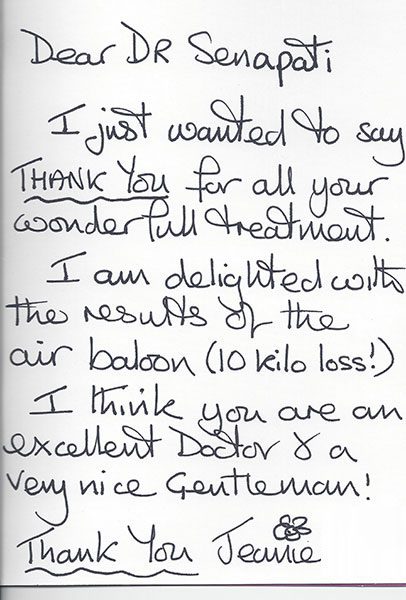 Dear DR Senapati
I just wanted to say
THANK YOU for all your
wonderfull treatment.
I am delighted with
the results of the
air baloon (10 kilo loss!)
I think you are an
excellent Doctor & a
very nice Gentleman!
Thank You Jeanie